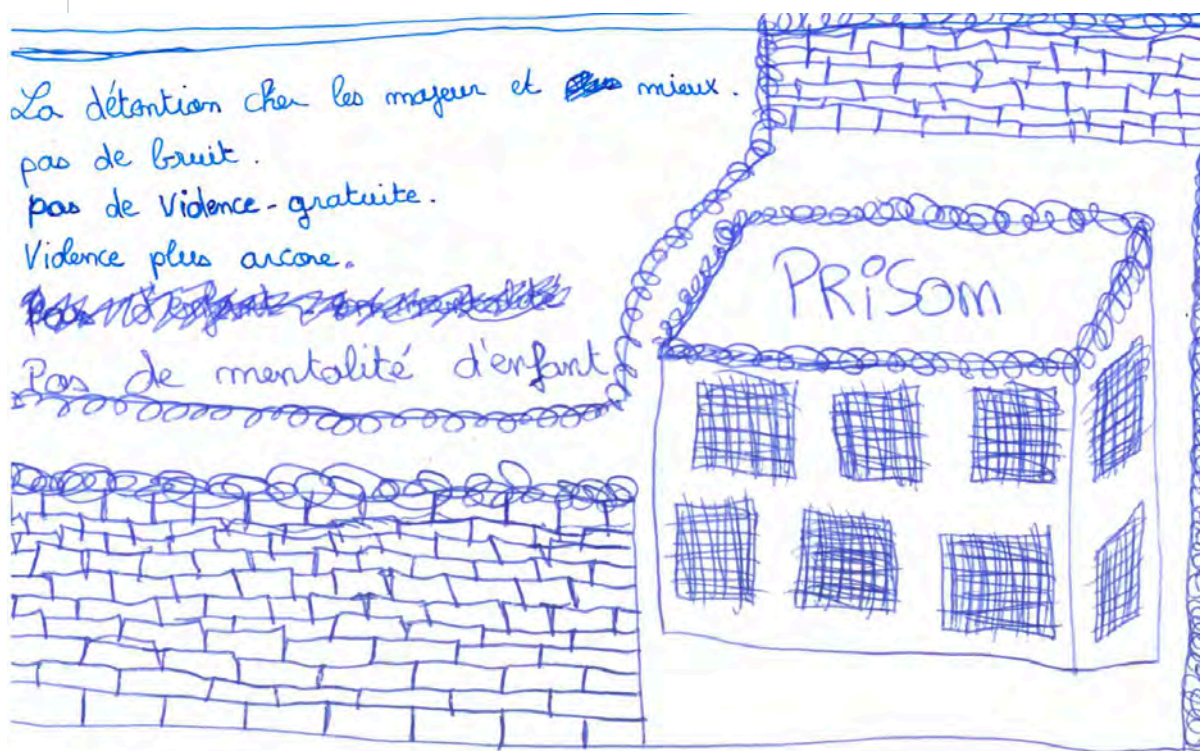 La détention cher les majeur et mieux.
pas de bruit.
pas de violence-gratuite.
Violence plus arcore.
Pas de mentalité d'enfant
PRiSOm